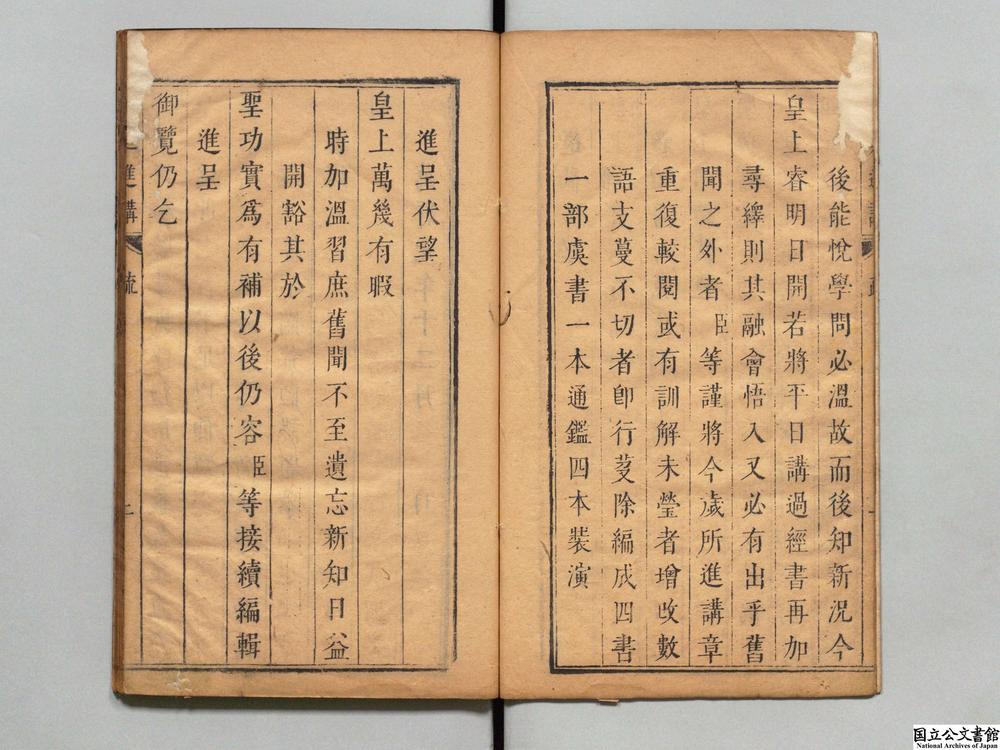 後能悅學問必溫故而後知新況今
皇上睿明日開若將平日講過經書再加
尋繹則其融會悟入又必有出乎舊
聞之外者臣等謹將今歲所進講章
重復較閱或有訓解未瑩者增改數
語支蔓不切者即行芟除編成四書
一部虞書一本通鑑四本裝演
進呈伏望
皇上萬幾有暇
時加溫習庶舊聞不至遺忘新知日益
開豁其於
聖功實為有補以後仍容臣等接續編輯
進呈
御覽仍乞
進講
疏
二
国立公文書館
National Archives of Japan